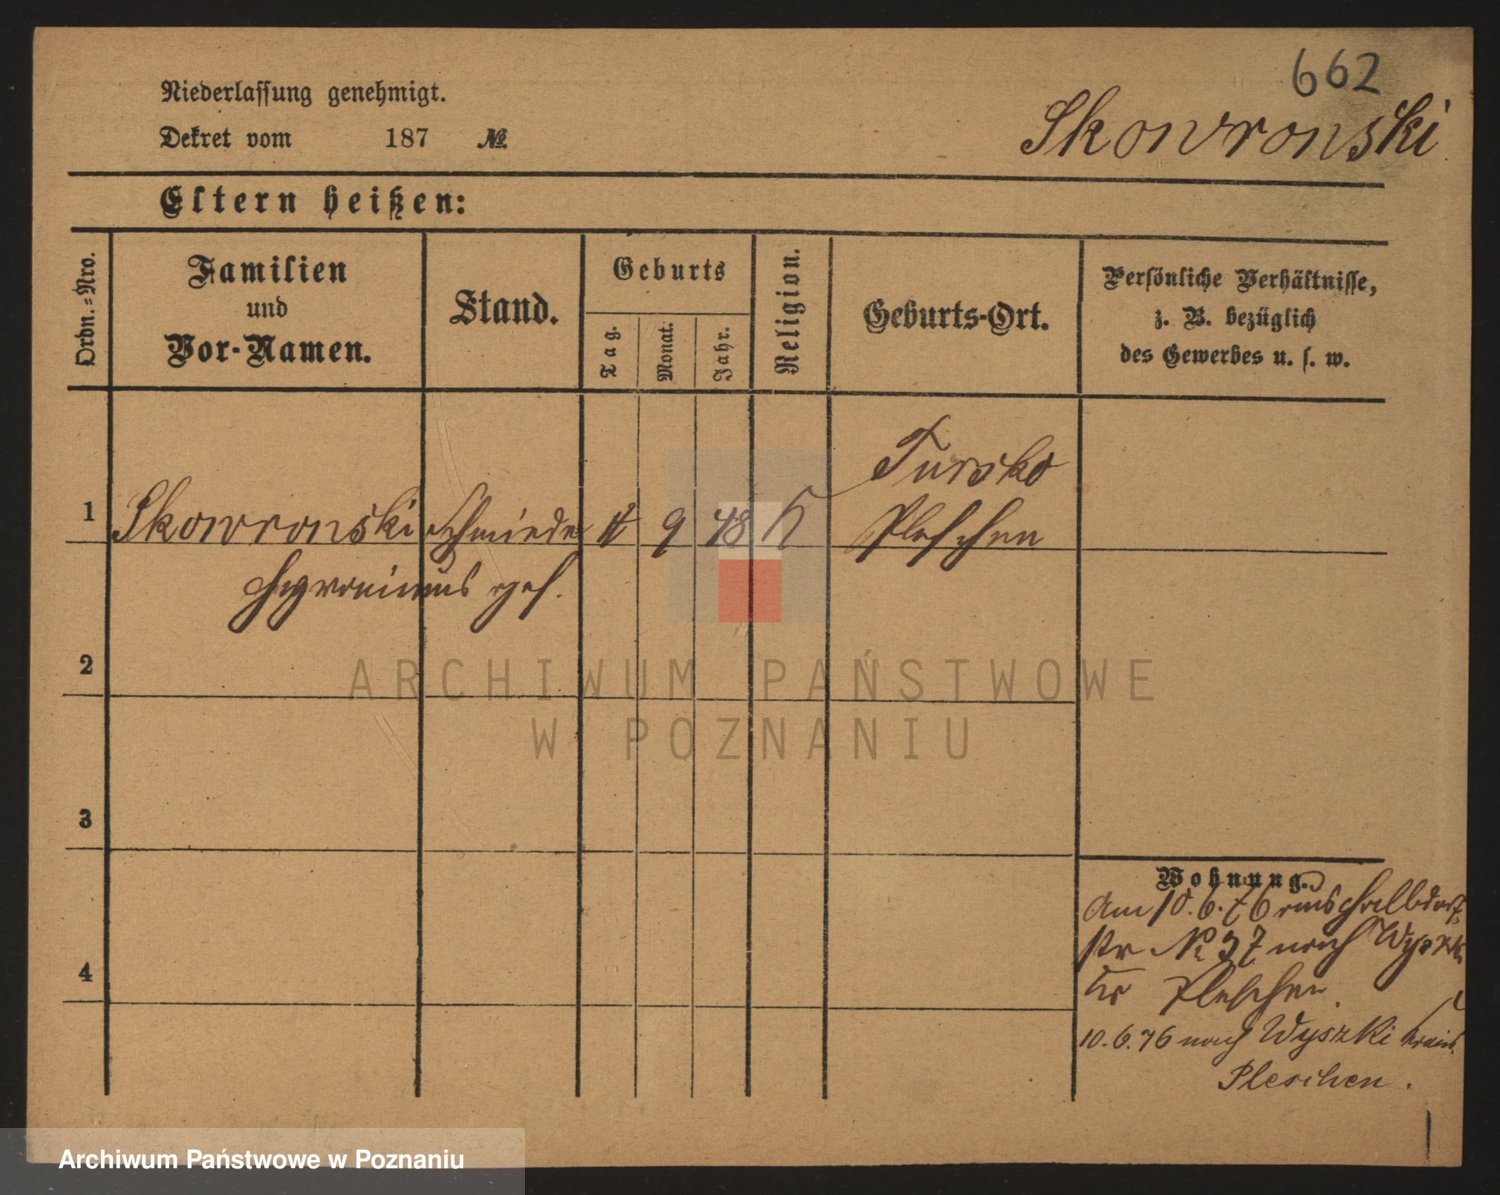 662
Niederlassung genehmigt.
Skowronski
Dekret vom 187 №
Eltern heißen:
Ordn.=Nro.
Familien
und
Vor-Namen.
Stand.
Geburts
Tag.
Monat.
Jahr.
Religion.
Geburts-Ort.
Persönliche Verhältnisse,
z. B. bezüglich
des Gewerbes u. s. w.
Tursko
1 Skowronski Schmiede 9 48 K Pleschen
Hyronimus ges.
2
3
4
Wohnung.
Am 10.6.76 aus Halbdorf
str № 37 nach Wyszki
Krs Pleschen.
10.6.76 nach Wyszki Kreis
Pleschen.
ARCHIWUM PAŃSTWOWE
W POZNANIU
Archiwum Państwowe w Poznaniu